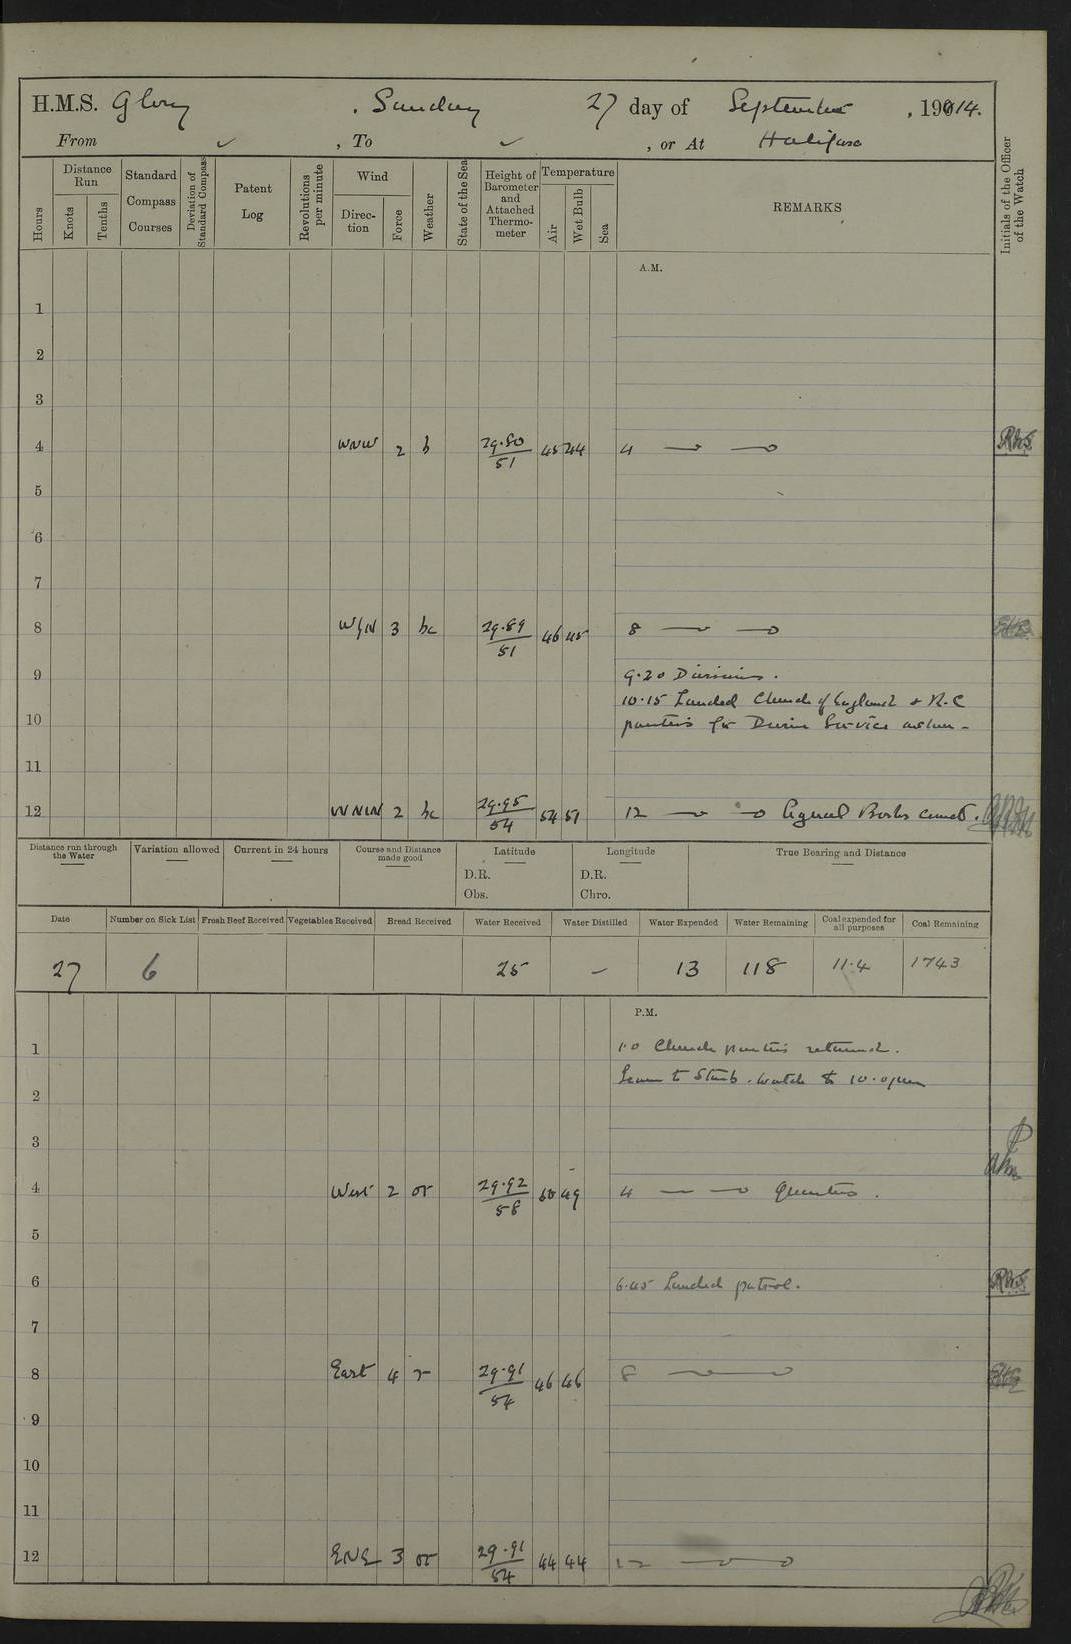 H.M.S. Glory , Sunday 27 day of September , 1914.
From ✓ , To ✓ , or At Halifax
Hours
Distance Run
Knots
Tenths
Standard Compass Courses
Deviation of Standard Compass
Patent Log
Revolutions per minute
Wind
Direction
Force
Weather
State of the Sea
Height of Barometer and Attached Thermometer
Temperature
Air
Wet Bulb
Sea
REMARKS
Initials of the Officer of the Watch
A.M.
1
2
3
4 WNW 2 b 29.80 51 45 44 4
5
6
7
8 WbN 3 bc 29.89 51 46 45 8
9 9.20 Divisions.
10.15 Landed Church of England & R.C
10 parties for Divine Service ashore
11
12 WNW 2 bc 29.95 54 54 51 12
Distance run through the Water
Variation allowed
Current in 24 hours
Course and Distance made good
Latitude
D.R.
Obs.
Longitude
D.R.
Chro.
True Bearing and Distance
Date Number on Sick List Fresh Beef Received Vegetables Received Bread Received Water Received Water Distilled Water Expended Water Remaining Coal expended for all purposes Coal Remaining
27 6 25 – 13 118 11.4 1743
P.M.
1 1.0 Church parties returned.
Leave to Starb. watch to 10.0 pm
2
3
4 West 2 or 29.92 58 50 49 4 Quarters.
5
6 6.45 Landed patrol.
7
8 East 4 r 29.91 54 46 46 8
9
10
11
12 ENE 3 or 29.91 54 44 44 12